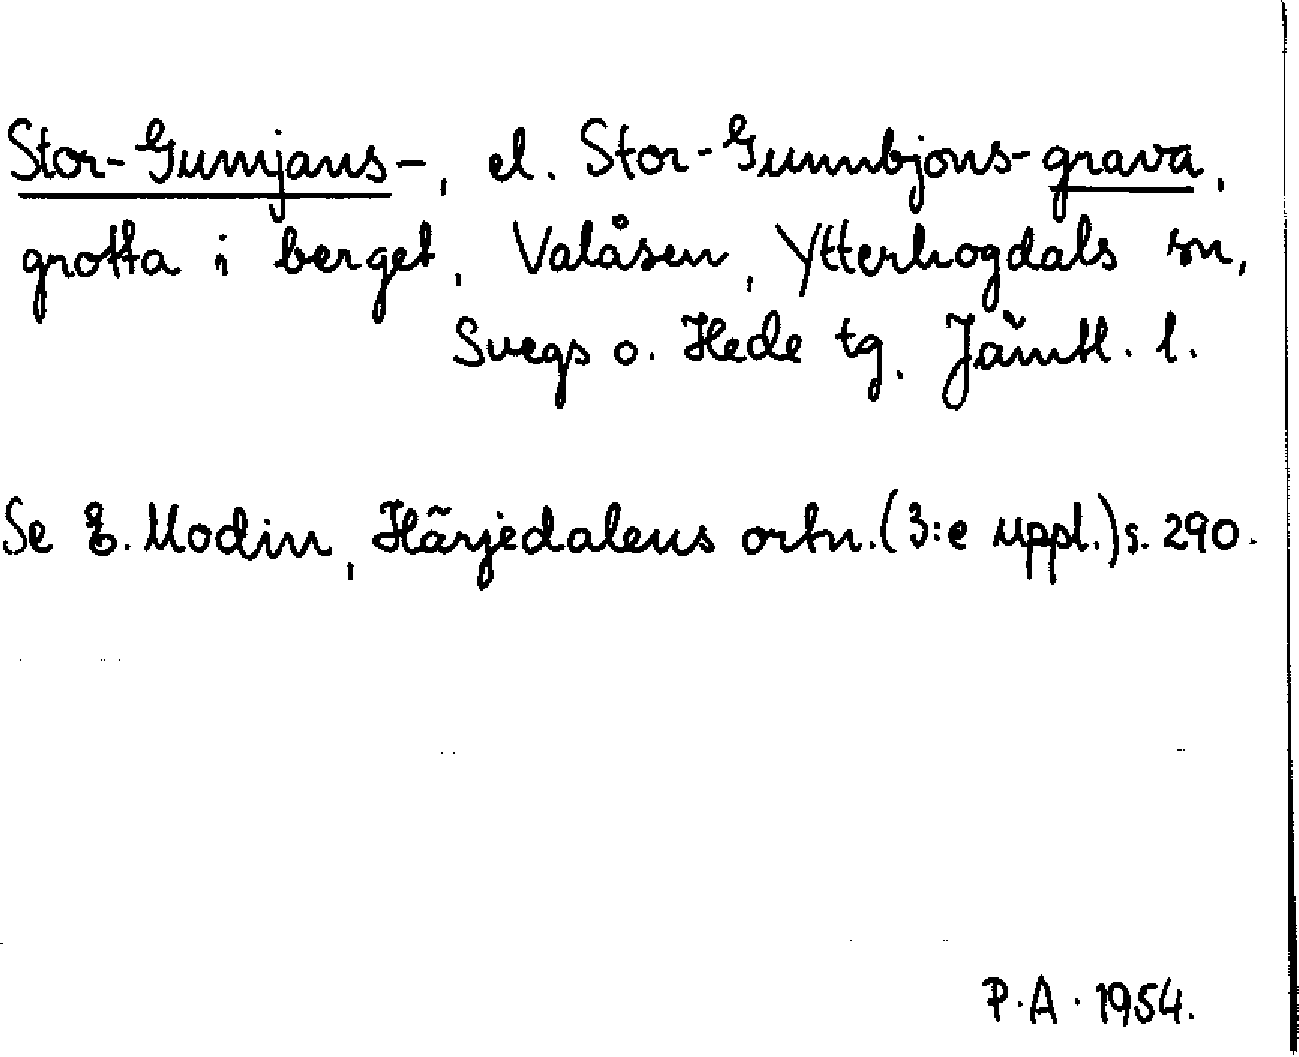 Stor-Gumjans-, el. Stor-Gunnbjöns-grava,
grotta i berget, Valåsen, Ytterhogdals sn,
Svegs o. Hede tg. Jämtl. l.
Se E. Modin, Härjedalens ortn. (3:e uppl.) s. 290.
P.A. 1954.